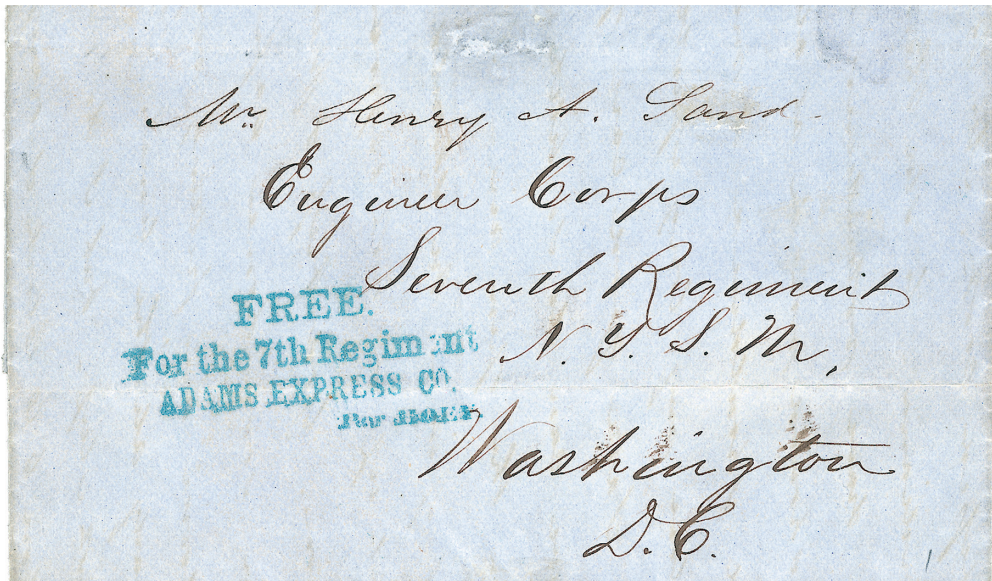 Mr. Henry A. Sand.
Engineer Corps
Seventh Regiment
N. Y. S. M.
Washington
D. C.
FREE.
For the 7th Regiment
ADAMS EXPRESS CO.
Per HOEY.